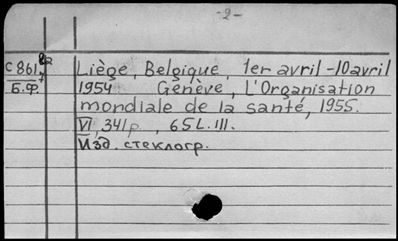 -2-
С 861 Liège, Belgique, 1er avril - 10 avril
Б.Ф. 1954 Genève, L'Organisation
mondiale de la santé, 1955.
VI, 341 p, 65 L. ill.
Изд. стеклогр.